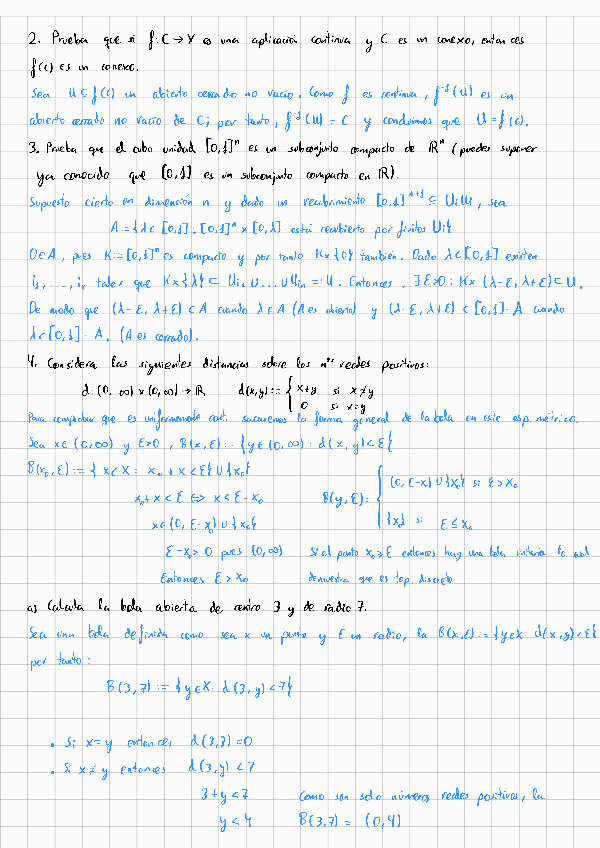 2. Prueba que si f: C → Y es una aplicación continua y C es un conexo, entonces
f(C) es un conexo.
Sea U ⊂ f(C) un abierto cerrado no vacío. Como f es continua, f⁻¹(U) es un
abierto cerrado no vacío de C; por tanto, f⁻¹(U) = C y concluimos que U = f(C).
3. Prueba que el cubo unidad [0,1]ⁿ es un subconjunto compacto de ℝⁿ (puedes suponer
ya conocido que [0,1] es un subconjunto compacto en ℝ).
Supuesto cierto en dimensión n y dado un recubrimiento [0,1]ⁿ⁺¹ ⊆ ∪ᵢUᵢ, sea
A = {λ ∈ [0,1] : [0,1]ⁿ × [0,λ] está recubierto por finitos Uᵢ}
0∈A, pues K := [0,1]ⁿ es compacto y por tanto K×{0} también. Dado λ∈[0,1] existen
i₁, ..., iᵣ tales que K×{λ} ⊂ Uᵢ₁ ∪ ... ∪ Uᵢₙ =: U. Entonces, ∃ε>0: K×(λ-ε, λ+ε) ⊂ U.
De modo que (λ-ε, λ+ε) ⊂ A cuando λ∈A (A es abierto) y (λ-ε, λ+ε) ⊂ [0,1]-A cuando
λ∈[0,1]-A. (A es cerrado).
4. Considera las siguientes distancias sobre los nºˢ reales positivos:
d: (0, ∞) × (0, ∞) → ℝ d(x,y) := { x+y si x≠y
0 si x=y
Para comprobar que es uniformemente cont. sacaremos la forma general de la bola en este esp. métrico.
Sea x∈(0,∞) y ε>0, B(x,ε) := {y∈(0,∞) : d(x,y)<ε}
B(x₀,ε) := {x∈X : x₀+x<ε} ∪ {x₀}
x₀+x<ε ⟺ x<ε-x₀
B(y,ε): { (0, ε-x) ∪ {x₀} si ε>x₀
x∈(0, ε-x₀) ∪ {x₀}
{x₀} si ε≤x₀
ε-x₀>0 pues (0,∞) Si el punto x₀≥ε entonces hay una bola
Entonces ε>x₀ demuestra que es top. discreto
a) Calcula la bola abierta de centro 3 y de radio 7.
Sea una bola definida como sea x un punto y ε un radio, la B(x,ε) := {y∈X : d(x,y)<ε}
por tanto:
B(3,7) := {y∈X : d(3,y)<7}
• Si x=y entonces d(3,3)=0
• Si x≠y entonces d(3,y)<7
3+y<7 Como son solo números reales positivos, la
y<4 B(3,7) = (0,4)